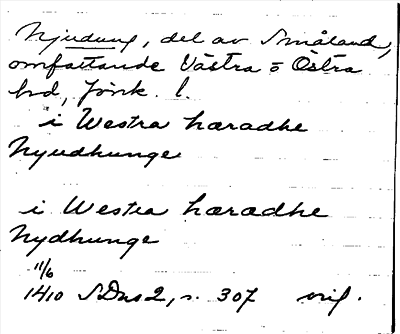 Njudung, del av Småland,
omfattande Västra o Östra
hd, Jönk. l.
i Westra hæradhe
Nyudhunge
i Westra hæradhe
Nydhunge
11/6
1410 SDns 2, s. 307 orig.